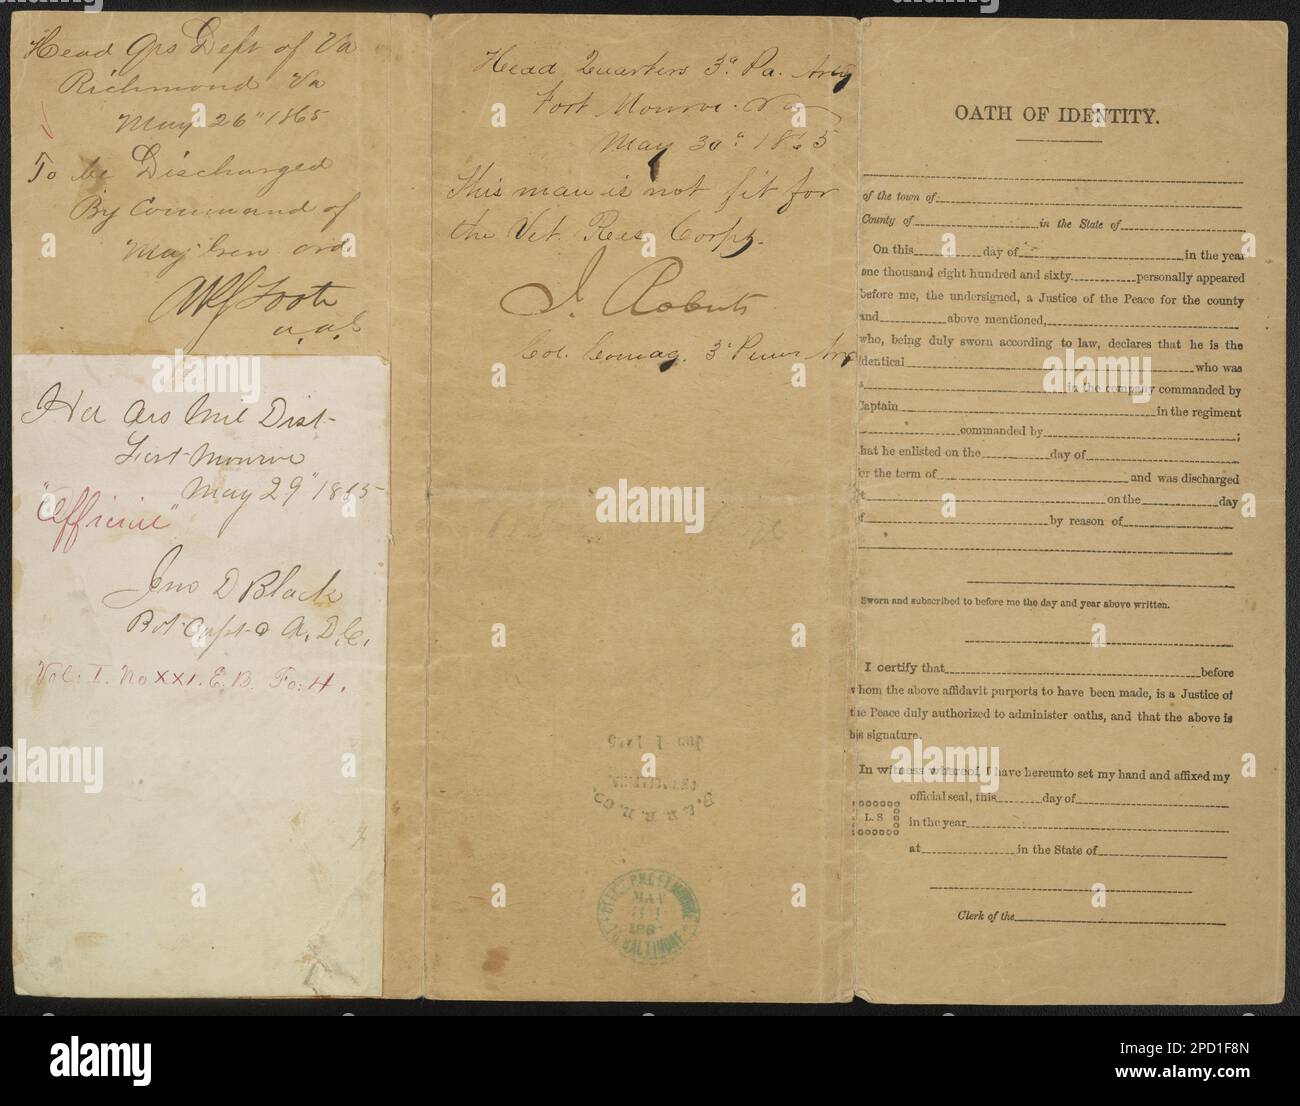 Head Qrs Dept of Va
Richmond Va
May 26" 1865
To be Discharged
By Command of
Maj Gen Ord
Foote
a.a.G
Hd Qrs Mil Dist
Fort Monroe
May 29" 1865
"Official"
Jno D Black
Bvt Capt & A. D. C.
Vol: I. No XXI. E. B. Fo: 4.
Head Quarters 3d Pa. Arty
Fort Monroe. Va
May 30" 1865
This man is not fit for
the Vet. Res. Corps.
J. Roberts
Col. Comdg. 3d Penn Art
B. & R. R. Co.
JUN 1 1865
BALTIMORE
MAY
OATH OF IDENTITY.
of the town of
County of in the State of
On this day of in the year
one thousand eight hundred and sixty personally appeared
before me, the undersigned, a Justice of the Peace for the county
and above mentioned,
who, being duly sworn according to law, declares that he is the
identical who was
a in the company commanded by
Captain in the regiment
commanded by ;
that he enlisted on the day of
for the term of and was discharged
at on the day
of by reason of
Sworn and subscribed to before me the day and year above written.
I certify that before
whom the above affidavit purports to have been made, is a Justice of
the Peace duly authorized to administer oaths, and that the above is
his signature.
In witness whereof, I have hereunto set my hand and affixed my
official seal, this day of
L. S
in the year
at in the State of
Clerk of the
alamy
Image ID: 2PD1F8N
www.alamy.com